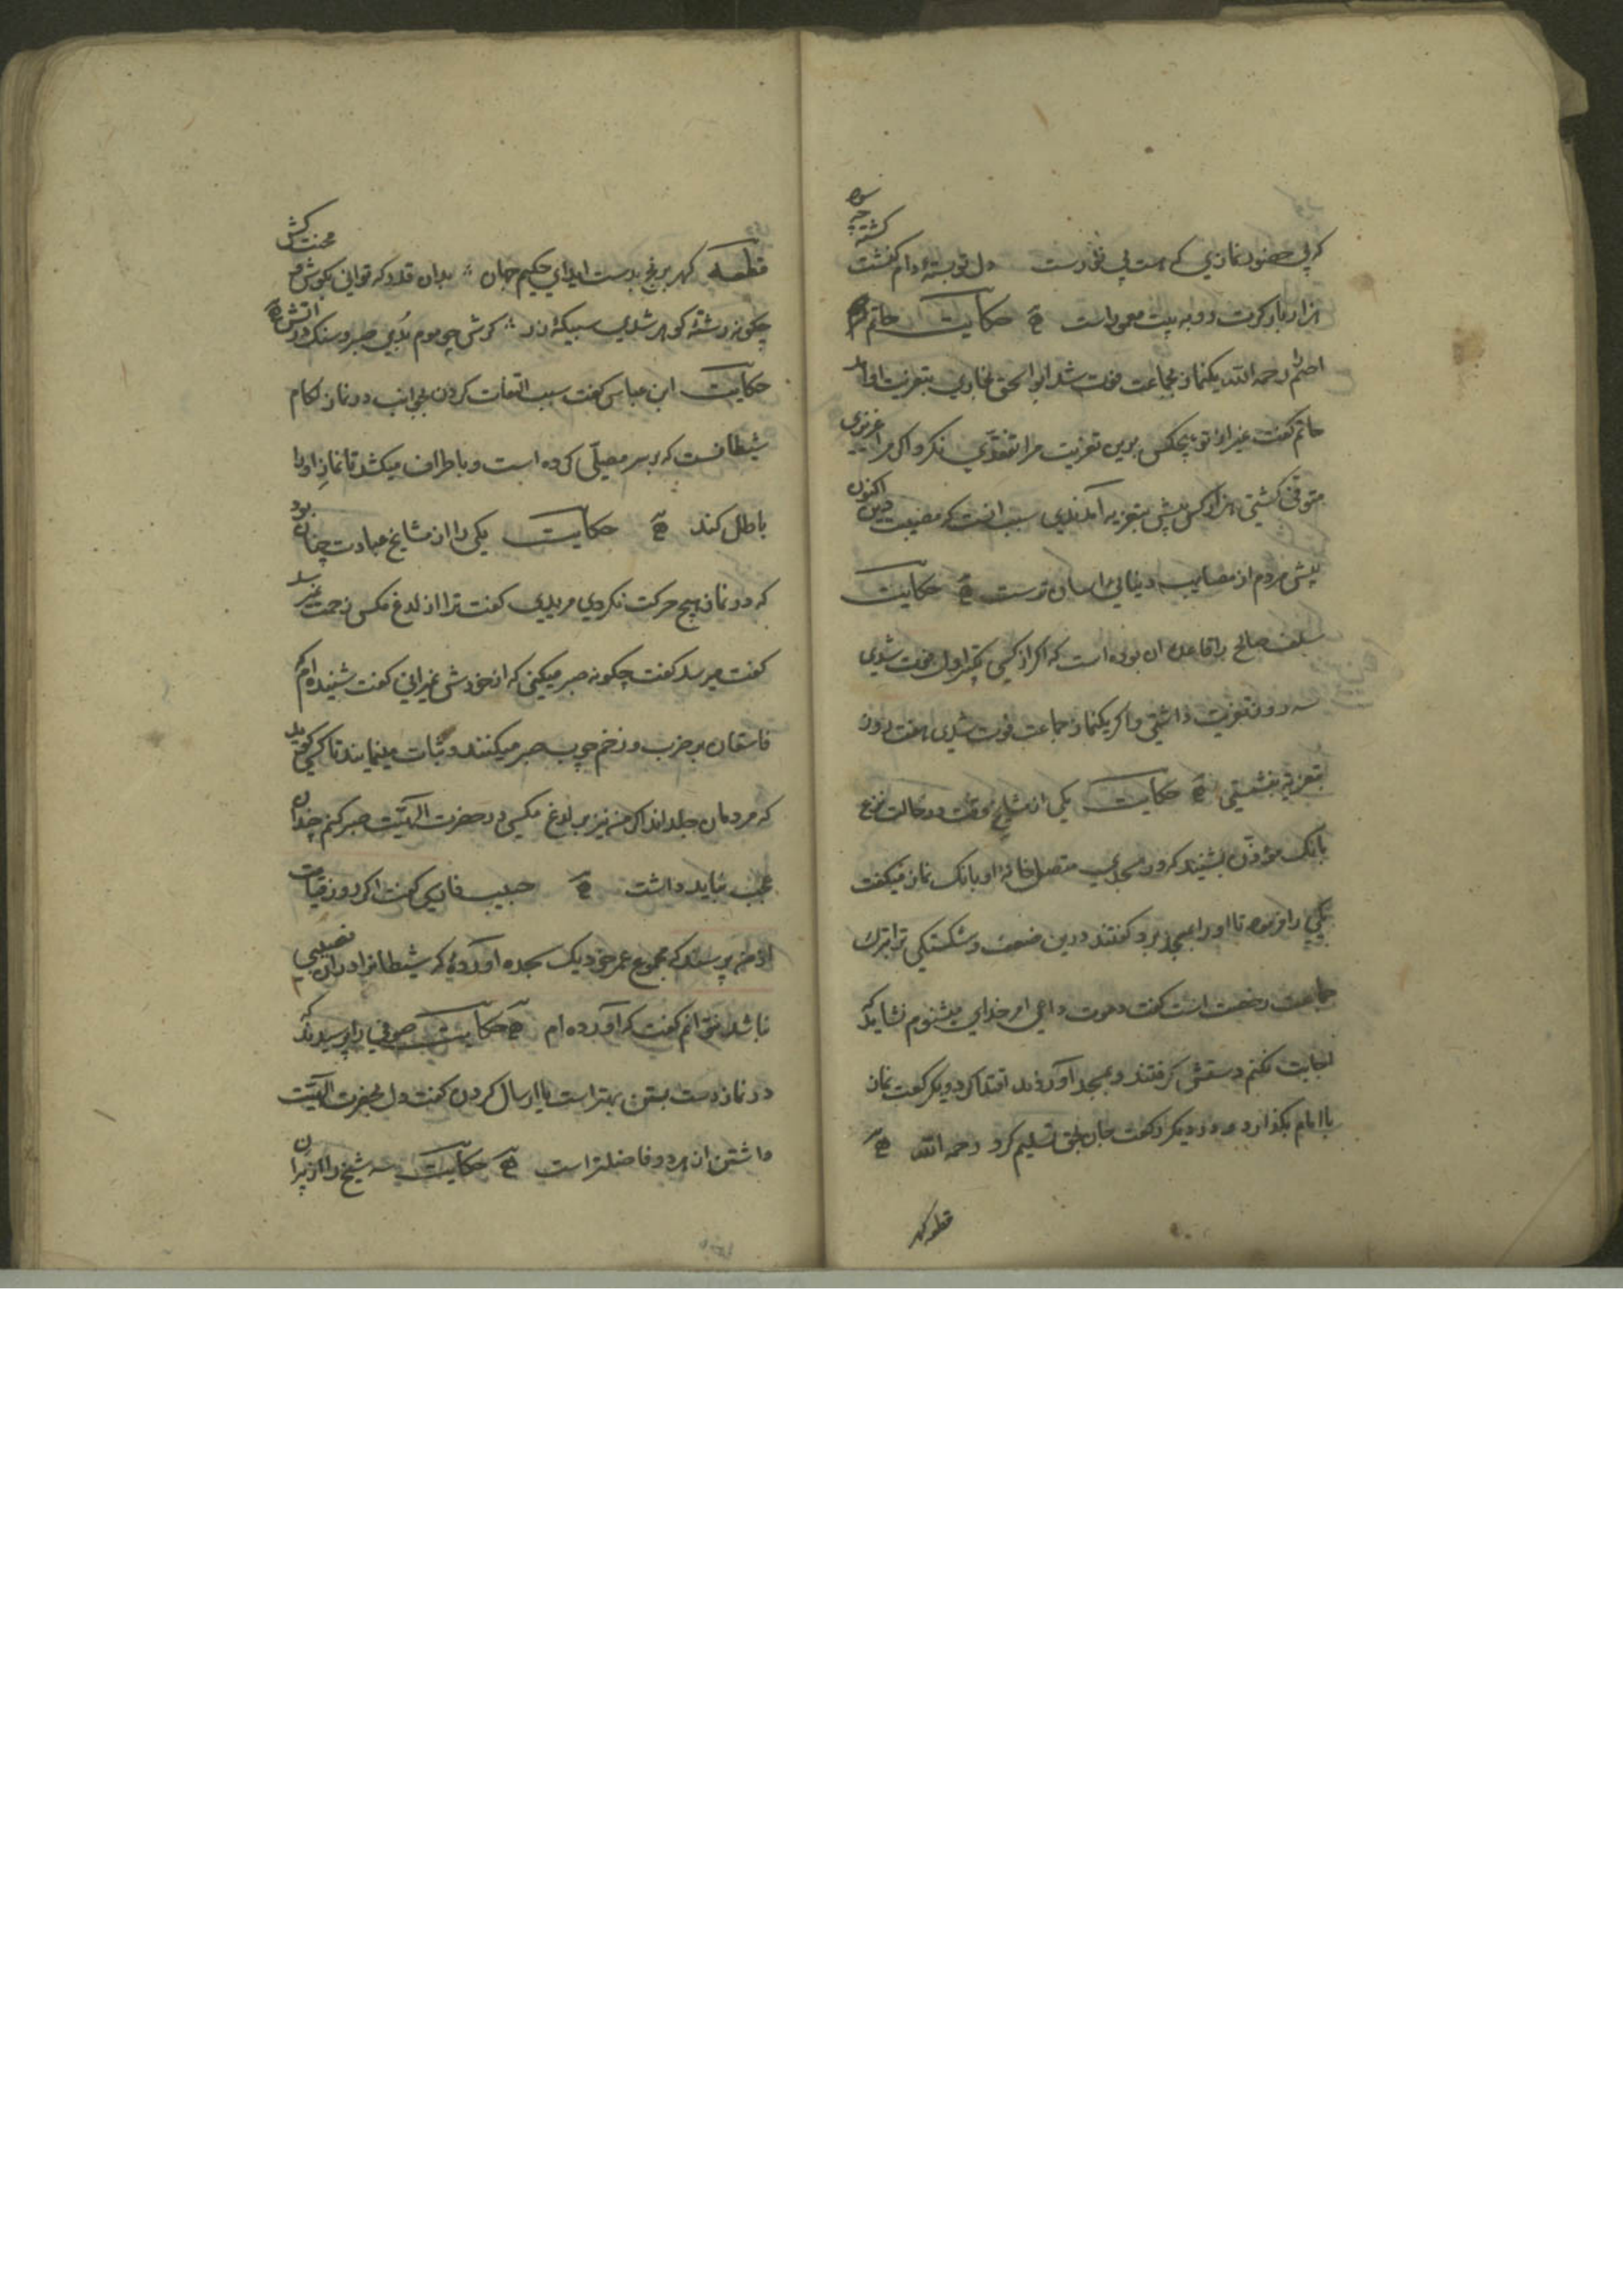 که بی حضور نمازی که هست بی نورست دل تو بستهٔ دام کنشت گشته چه سود
هزار بار گرت رو به بیت معمورست حکایت حاتم
اصم رحمه الله یکنماز بجماعت فوت شد ابواسحق بخاری بتعزیت او آمد
حاتم گفت غیر از تو هیچکس برین تعزیت مرا تفقدی نکرد اگر مرا عزیزی
متوفی گشتی هزار کس پیش بتعزیه آمدندی سبب آنست که مصیبت دین اکنون
پیش مردم از مصایب دنیایی آسان ترست حکایت
سلف صالح را قاعده آن بوده است که اگر از کسی تکبیر اول فوت شدی
سه روز تعزیت داشتی و اگر یکنماز جماعت فوت شدی هفت روز
بتعزیه بنشستی حکایت یکی از مشایخ وقت در حالت نزع
بانک مؤذن بشنید که در مسجدی متصل خانهٔ او بانک نماز میگفت
یکی را فرمود تا او را بمسجد برد گفتند درین ضعف و شکستگی ترا بترک
جماعت رخصت است گفت دعوت داعی امر خدای میشنوم نشاید که
اجابت نکنم دستش گرفتند و بمسجد آوردند اقتدا کرد و یکرکعت نماز
با امام بگذارد و در دیگر رکعت جان بحق تسلیم کرد رحمه الله
قطعه گهر
قطعه گهر برنج بدست آید ای حکیم جهان بدان قدر که توانی بکوش و محنت کش
چگونه رشتهٔ گوهر شدی سبیکهٔ زر گرش چو موم بدی صبر و سنک در آتش
حکایت ابن عباس گفت سبب التفات کردن بجوانب در نماز لگام
شیطانست که بر سر مصلی کرده است و باطراف میکشد تا نماز او را
باطل کند حکایت یکی را از مشایخ عبادت چنان بود
که در نماز هیچ حرکت نکردی مریدی گفت ترا از لدغ مکس زحمت نمیرسد
گفت میرسد گفت چگونه صبر میکنی که از خودش نمیرانی گفت شنیده ام که
فاسقان بر ضرب و زخم چوب صبر میکنند و ثبات مینمایند تا کسی گوید
که مردمان جلداند اگر من نیز بر لدغ مکسی در حضرت الهیت صبر کنم چندان
عجب نباید داشت حبیب فارسی گفت اگر روز قیامت
از من پرسند که مجموع عمر خود یک سجده آوردهٔ که شیطانرا در آن نصیبی
نباشد نتوانم گفت که آورده ام حکایت صوفی را پرسیدند که
در نماز دست بستن بهتر است یا ارسال کردن گفت دل بحضرت الهیت
داشتن از هر دو فاضلتر است حکایت سه شیخ را از پیران